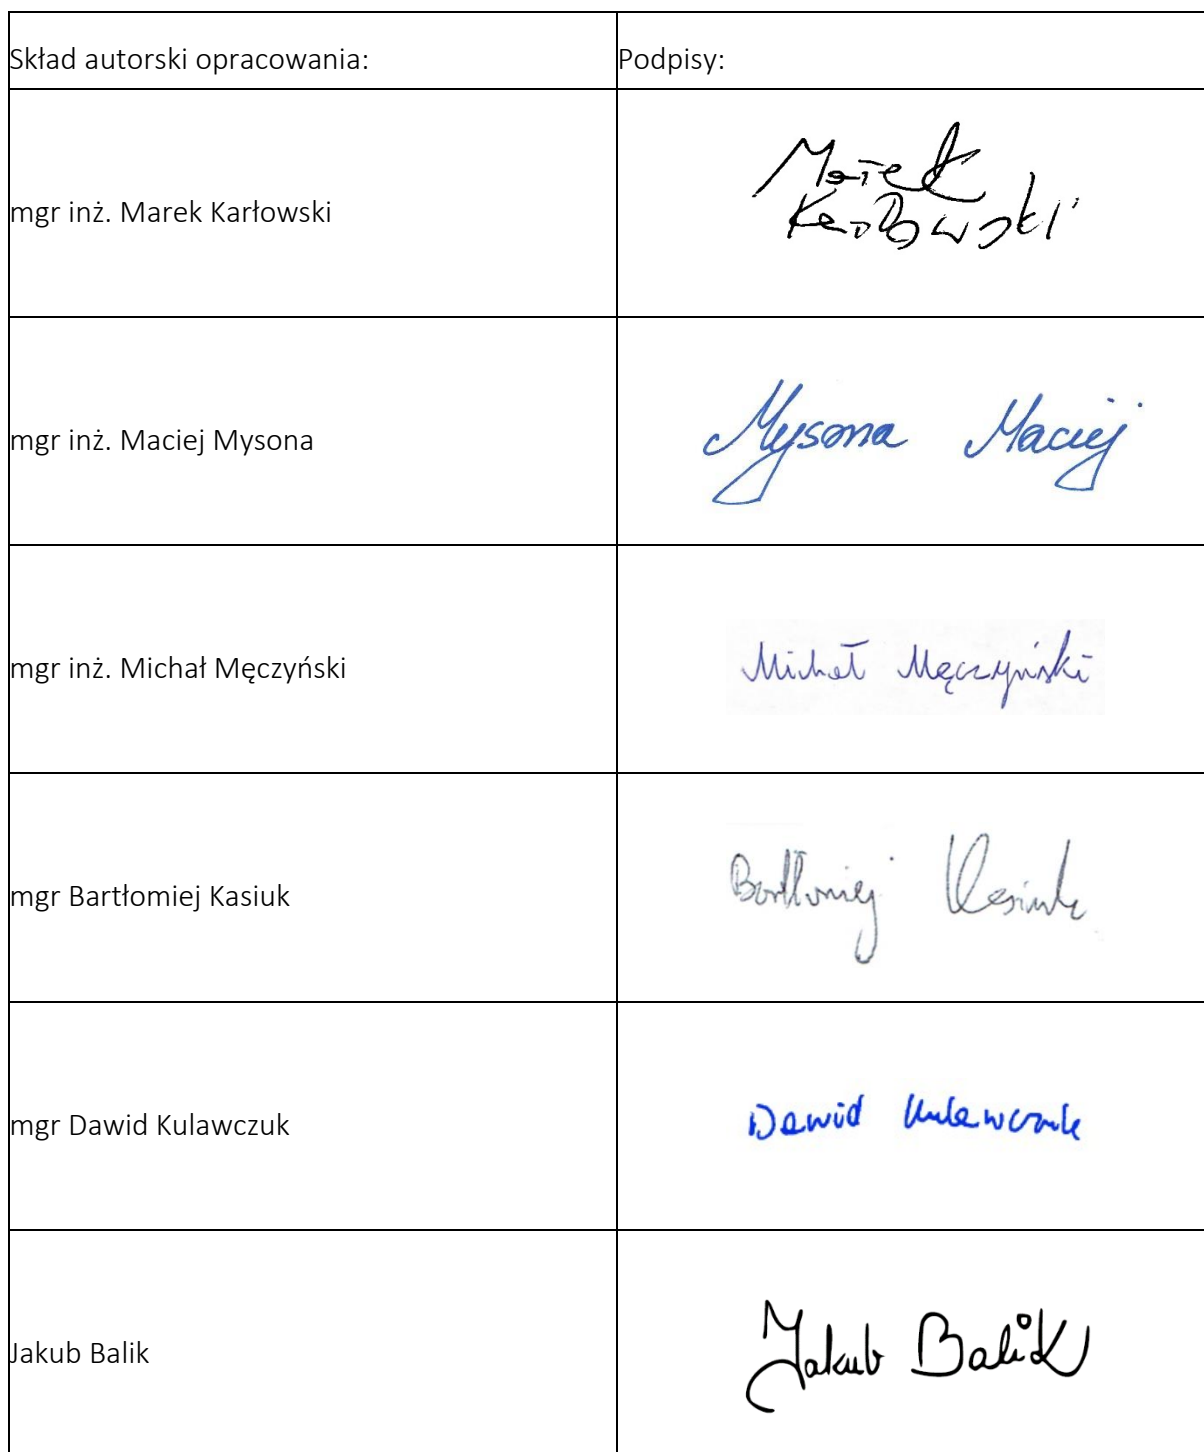 Skład autorski opracowania: Podpisy:
mgr inż. Marek Karłowski
Marek
Karłowski
mgr inż. Maciej Mysona
Mysona Maciej
mgr inż. Michał Męczyński
Michał Męczyński
mgr Bartłomiej Kasiuk
Bartłomiej Kasiuk
mgr Dawid Kulawczuk
Dawid Kulawczuk
Jakub Balik
Jakub Balik